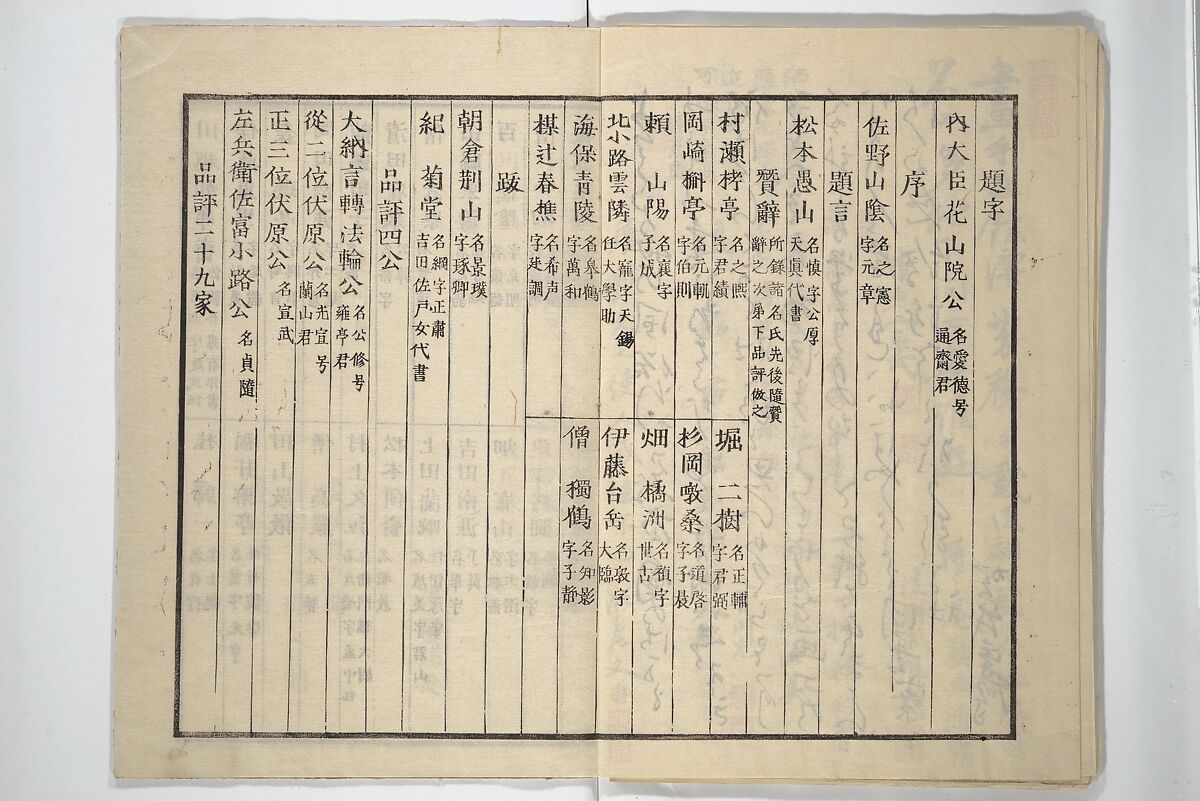 題字
內大臣花山院公 名愛德号
通齋君
序
佐野山陰 名之憲
字元章
題言
松本愚山 名慎字公厚
天眞代書
贊辭 所錄諸名氏先後隨贊
辭之次弟下品評倣之
村瀬栲亭 名之熙
字君績
堀 二樹 名正輔
字君弼
岡崎槲亭 名元軏
字伯則
杉岡暾桑 名道啓
字子晨
賴 山陽 名襄字
子成
畑 橘洲 名楨字
世古
北小路雲隣 名寵字天錫
任大學助
伊藤台岳 名裒字
大臨
海保青陵 名皋鶴
字萬和
僧 獨鶴 名知影
字子静
楳辻春樵 名希声
字延調
跋
朝倉荆山 名景璞
字琢卿
紀 菊堂 名綱字正肅
吉田佐戸女代書
品評四公
大納言轉法輪公 名公修号
雍亭君
從二位伏原公 名光宣号
蘭山君
正三位伏原公 名宣武
左兵衛佐富小路公 名貞隨
品評二十九家